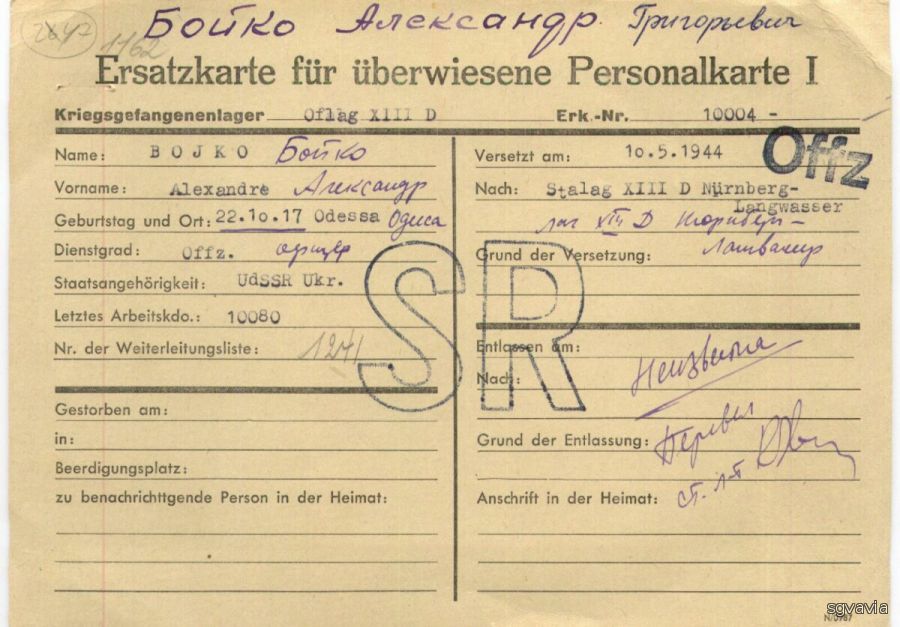 2847
1162
Бойко Александр Григорьевич
Ersatzkarte für überwiesene Personalkarte I
Kriegsgefangenenlager Oflag XIII D Erk.-Nr. 10004 -
Offz
Name: BOJKO Бойко
Vorname: Alexandre Александр
Geburtstag und Ort: 22.10.17 Odessa Одеса
Dienstgrad: Offz. офицер
Staatsangehörigkeit: UdSSR Ukr.
Letztes Arbeitskdo.: 10080
Nr. der Weiterleitungsliste: 1241
Gestorben am:
in:
Beerdigungsplatz:
zu benachrichttgende Person in der Heimat:
SR
Versetzt am: 10.5.1944
Nach: Stalag XIII D Nürnberg-
Langwasser
лаг XIII D Нюрнберг-
Grund der Versetzung: Лангвасер
Entlassen am:
Неизвестна
Nach:
Grund der Entlassung: Перевел
ст. л-т
Anschrift in der Heimat:
N/0787
sgvavia